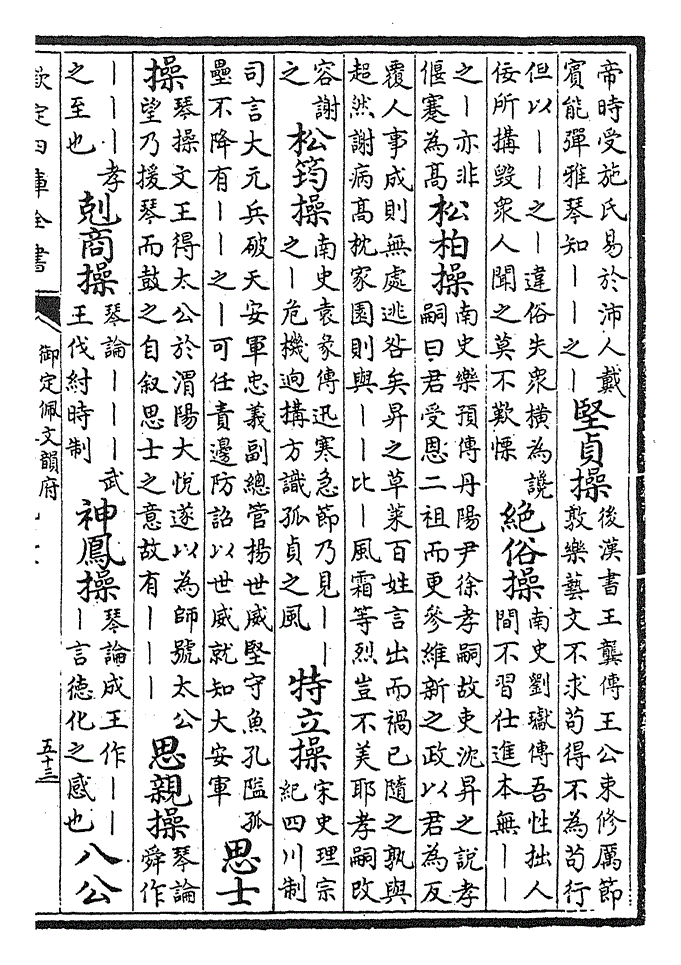 帝時受施氏易於沛人戴
賓能彈雅琴知｜｜之｜
堅貞操
後漢書王龔傳王公束修厲節
敦樂藝文不求苟得不為苟行
但以｜｜之｜違俗失衆橫為讒
佞所搆毀衆人聞之莫不歎慄
絶俗操
南史劉瓛傳吾性拙人
間不習仕進本無｜｜
之｜亦非
偃蹇為髙
松柏操
南史樂預傳丹陽尹徐孝嗣故吏沈昇之說孝
嗣曰君受恩二祖而更參維新之政以君為反
覆人事成則無處逃咎矣昇之草萊百姓言出而禍已隨之孰與
超然謝病髙枕家園則與｜｜比｜風霜等烈豈不美耶孝嗣改
容謝
之
松筠操
南史袁彖傳迅寒急節乃見｜｜
之｜危機逈搆方識孤貞之風
特立操
宋史理宗
紀四川制
司言大元兵破天安軍忠義副總管揚世威堅守魚孔隘孤
壘不降有｜｜之｜可任責邊防詔以世威就知大安軍
思士
操
琴操文王得太公於渭陽大悅遂以為師號太公
望乃援琴而鼓之自叙思士之意故有｜｜｜
思親操
琴論
舜作
｜｜｜孝
之至也
剋商操
琴論｜｜｜武
王伐紂時制
神鳳操
琴論成王作｜｜
｜言德化之感也
八公
欽定四庫全書
御定佩文韻府
五十三